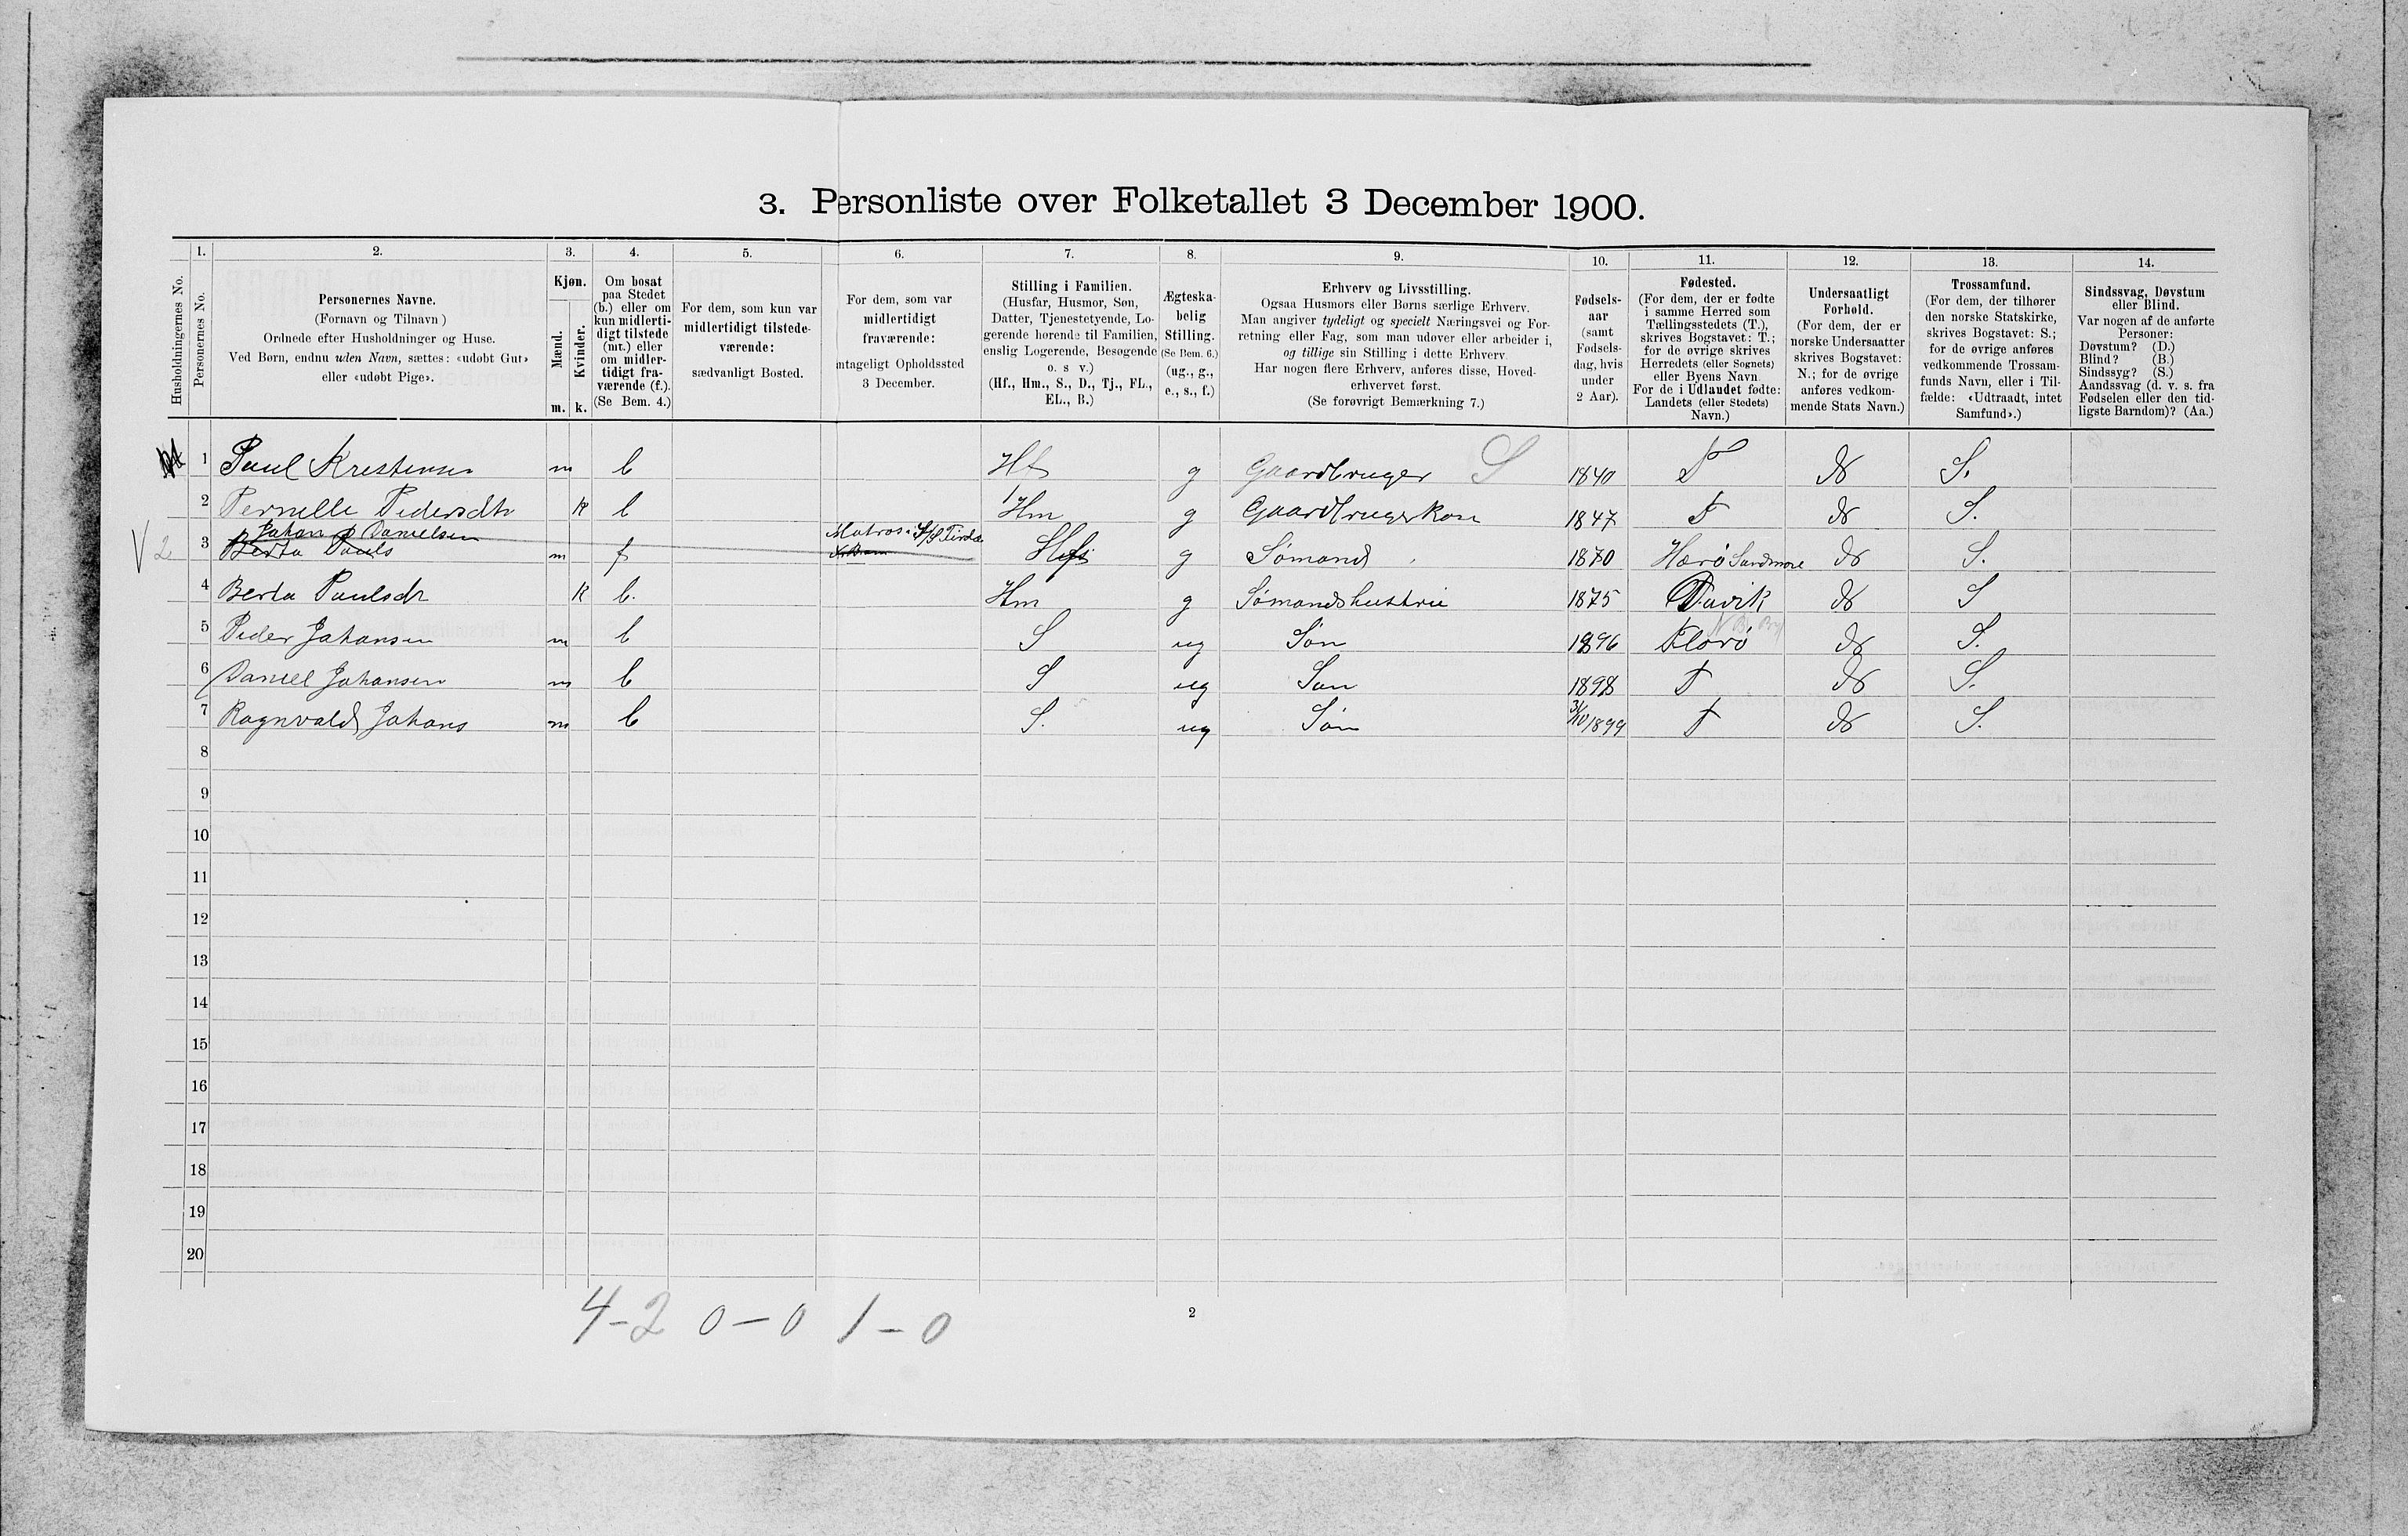 3. Personliste over Folketallet 3 December 1900.
Husholdningernes No.
1.
Personernes No.
2.
Personernes Navne.
(Fornavn og Tilnavn )
Ordnede efter Husholdninger og Huse.
Ved Børn, endnu uden Navn, sættes: «udøbt Gut»
eller «udøbt Pige».
3.
Kjøn.
Mænd.
Kvinder.
m. k.
4.
Om bosat
paa Stedet
(b.) eller om
kun midlerti-
digt tilstede
(mt.) eller
om midler-
tidigt fra-
værende (f.).
(Se Bem. 4.)
5.
For dem, som kun var
midlertidigt tilstede-
værende:
sædvanligt Bosted.
6.
For dem, som var
midlertidigt
fraværende:
ntageligt Opholdssted
3 December.
7.
Stilling i Familien.
(Husfar, Husmor, Søn,
Datter, Tjenestetyende, Lo-
gerende hørende til Familien,
enslig Logerende, Besøgende
o. s v.)
(Hf., Hm., S., D., Tj., FL.,
EL., B.)
8.
Ægteska-
belig
Stilling.
(Se Bem. 6.)
(ug., g.,
e., s., f.)
9.
Erhverv og Livsstilling.
Ogsaa Husmors eller Børns særlige Erhverv.
Man angiver tydeligt og specielt Næringsvei og For-
retning eller Fag, som man udøver eller arbeider i,
og tillige sin Stilling i dette Erhverv.
Har nogen flere Erhverv, anføres disse, Hoved-
erhvervet først.
(Se forøvrigt Bemærkning 7.)
10.
Fødsels-
aar
(samt
Fødsels-
dag, hvis
under
2 Aar).
11.
Fødested.
(For dem, der er fødte
i samme Herred som
Tællingsstedets (T.),
skrives Bogstavet: T.;
for de øvrige skrives
Herredets (eller Sognets)
eller Byens Navn.
For de i Udlandet fødte:
Landets (eller Stedets)
Navn.)
12.
Undersaatligt
Forhold.
(For dem, der er
norske Undersaatter
skrives Bogstavet:
N.; for de øvrige
anføres vedkom-
mende Stats Navn.)
13.
Trossamfund.
(For dem, der tilhører
den norske Statskirke,
skrives Bogstavet: S.;
for de øvrige anføres
vedkommende Trossam-
funds Navn, eller i Til-
fælde: «Udtraadt, intet
Samfund».)
14.
Sindssvag, Døvstum
eller Blind.
Var nogen af de anførte
Personer:
Døvstum? (D.)
Blind? (B.)
Sindssyg? (S.)
Aandssvag (d. v. s. fra
Fødselen eller den tid-
ligste Barndom)? (Aa.)
1 Paul Kristensen m b Hf g Gaardbruger S 1840 T N S.
2 Pernille Pedersdtr k b Hm g Gaardbrugerkone 1847 T N S.
Johan P Danielsen Matros i S/S Firda
V 2 3 Berta Pauls m f Hf g Sømand 1870 Herø Søndmøre N S.
4 Berta Paulsdr k b. Hm g Sømandshustru 1875 Davik N S
5 Peder Johansen m b S ug Søn 1896 Florø N S.
6 Daniel Johansen m b S ug Søn 1898 T N S.
7 Ragnvald Johans m b S. ug Søn 31/10 1899 T N S.
8
9
10
11
12
13
14
15
16
17
18
19
20
4-2 0-0 1-0
2